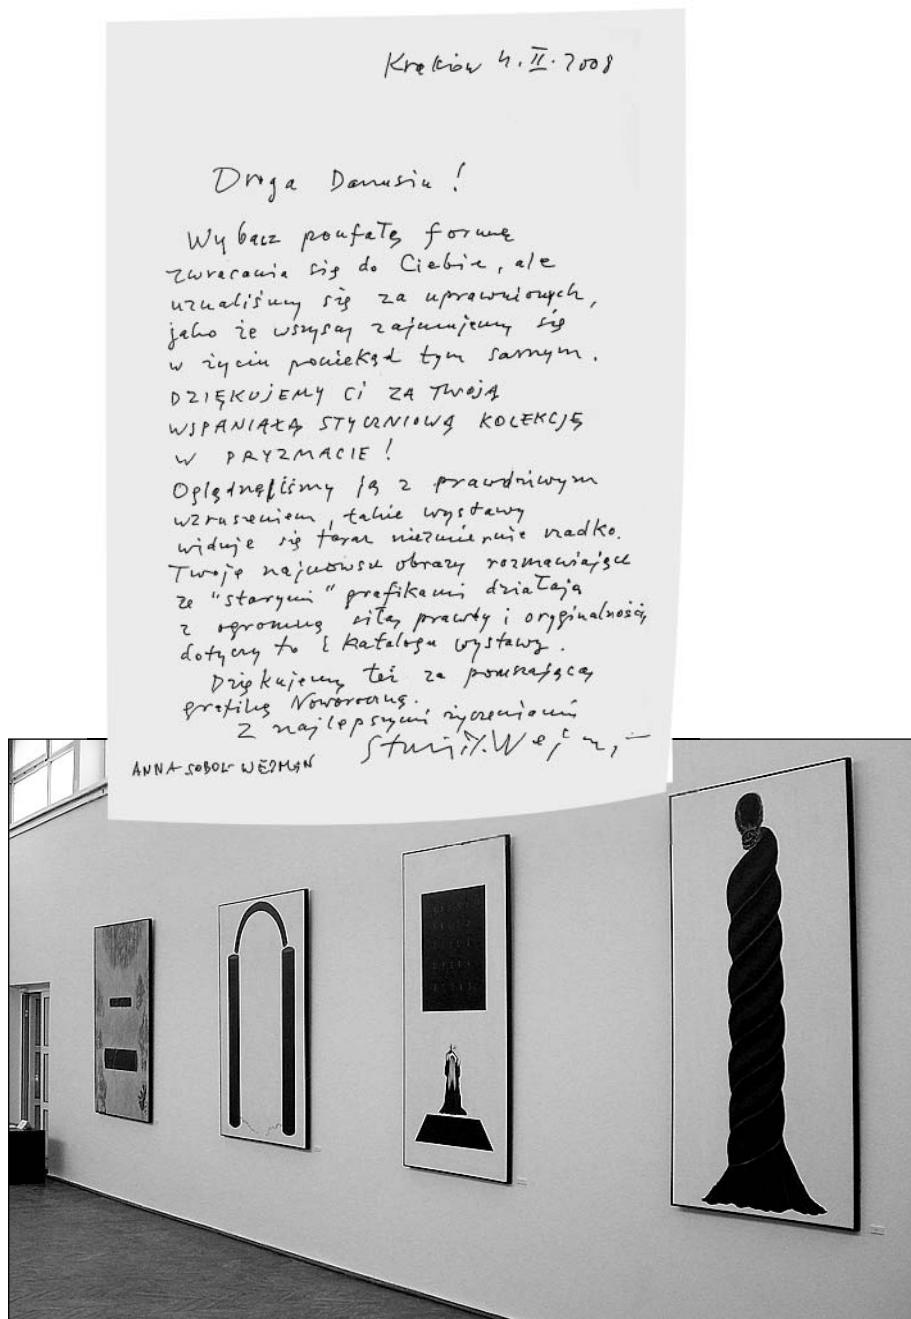 Kraków 4. II. 2008
Droga Danusiu!
Wybacz poufałą formę
zwracania się do Ciebie, ale
uznaliśmy się za uprawnionych,
jako że wszyscy zajmujemy się
w życiu poniekąd tym samym.
DZIĘKUJEMY CI ZA TWOJĄ
WSPANIAŁĄ STYCZNIOWĄ KOLEKCJĘ
W PRYZMACIE!
Oglądnęliśmy ją z prawdziwym
wzruszeniem, takie wystawy
widuje się teraz niezmiernie rzadko.
Twoje najnowsze obrazy rozmawiające
ze "starymi" grafikami działają
z ogromną siłą prawdy i oryginalności,
dotyczy to i katalogu wystawy.
Dziękujemy też za poruszającą
grafikę Noworoczną.
Z najlepszymi życzeniami
ANNA SOBOL-WEJMAN